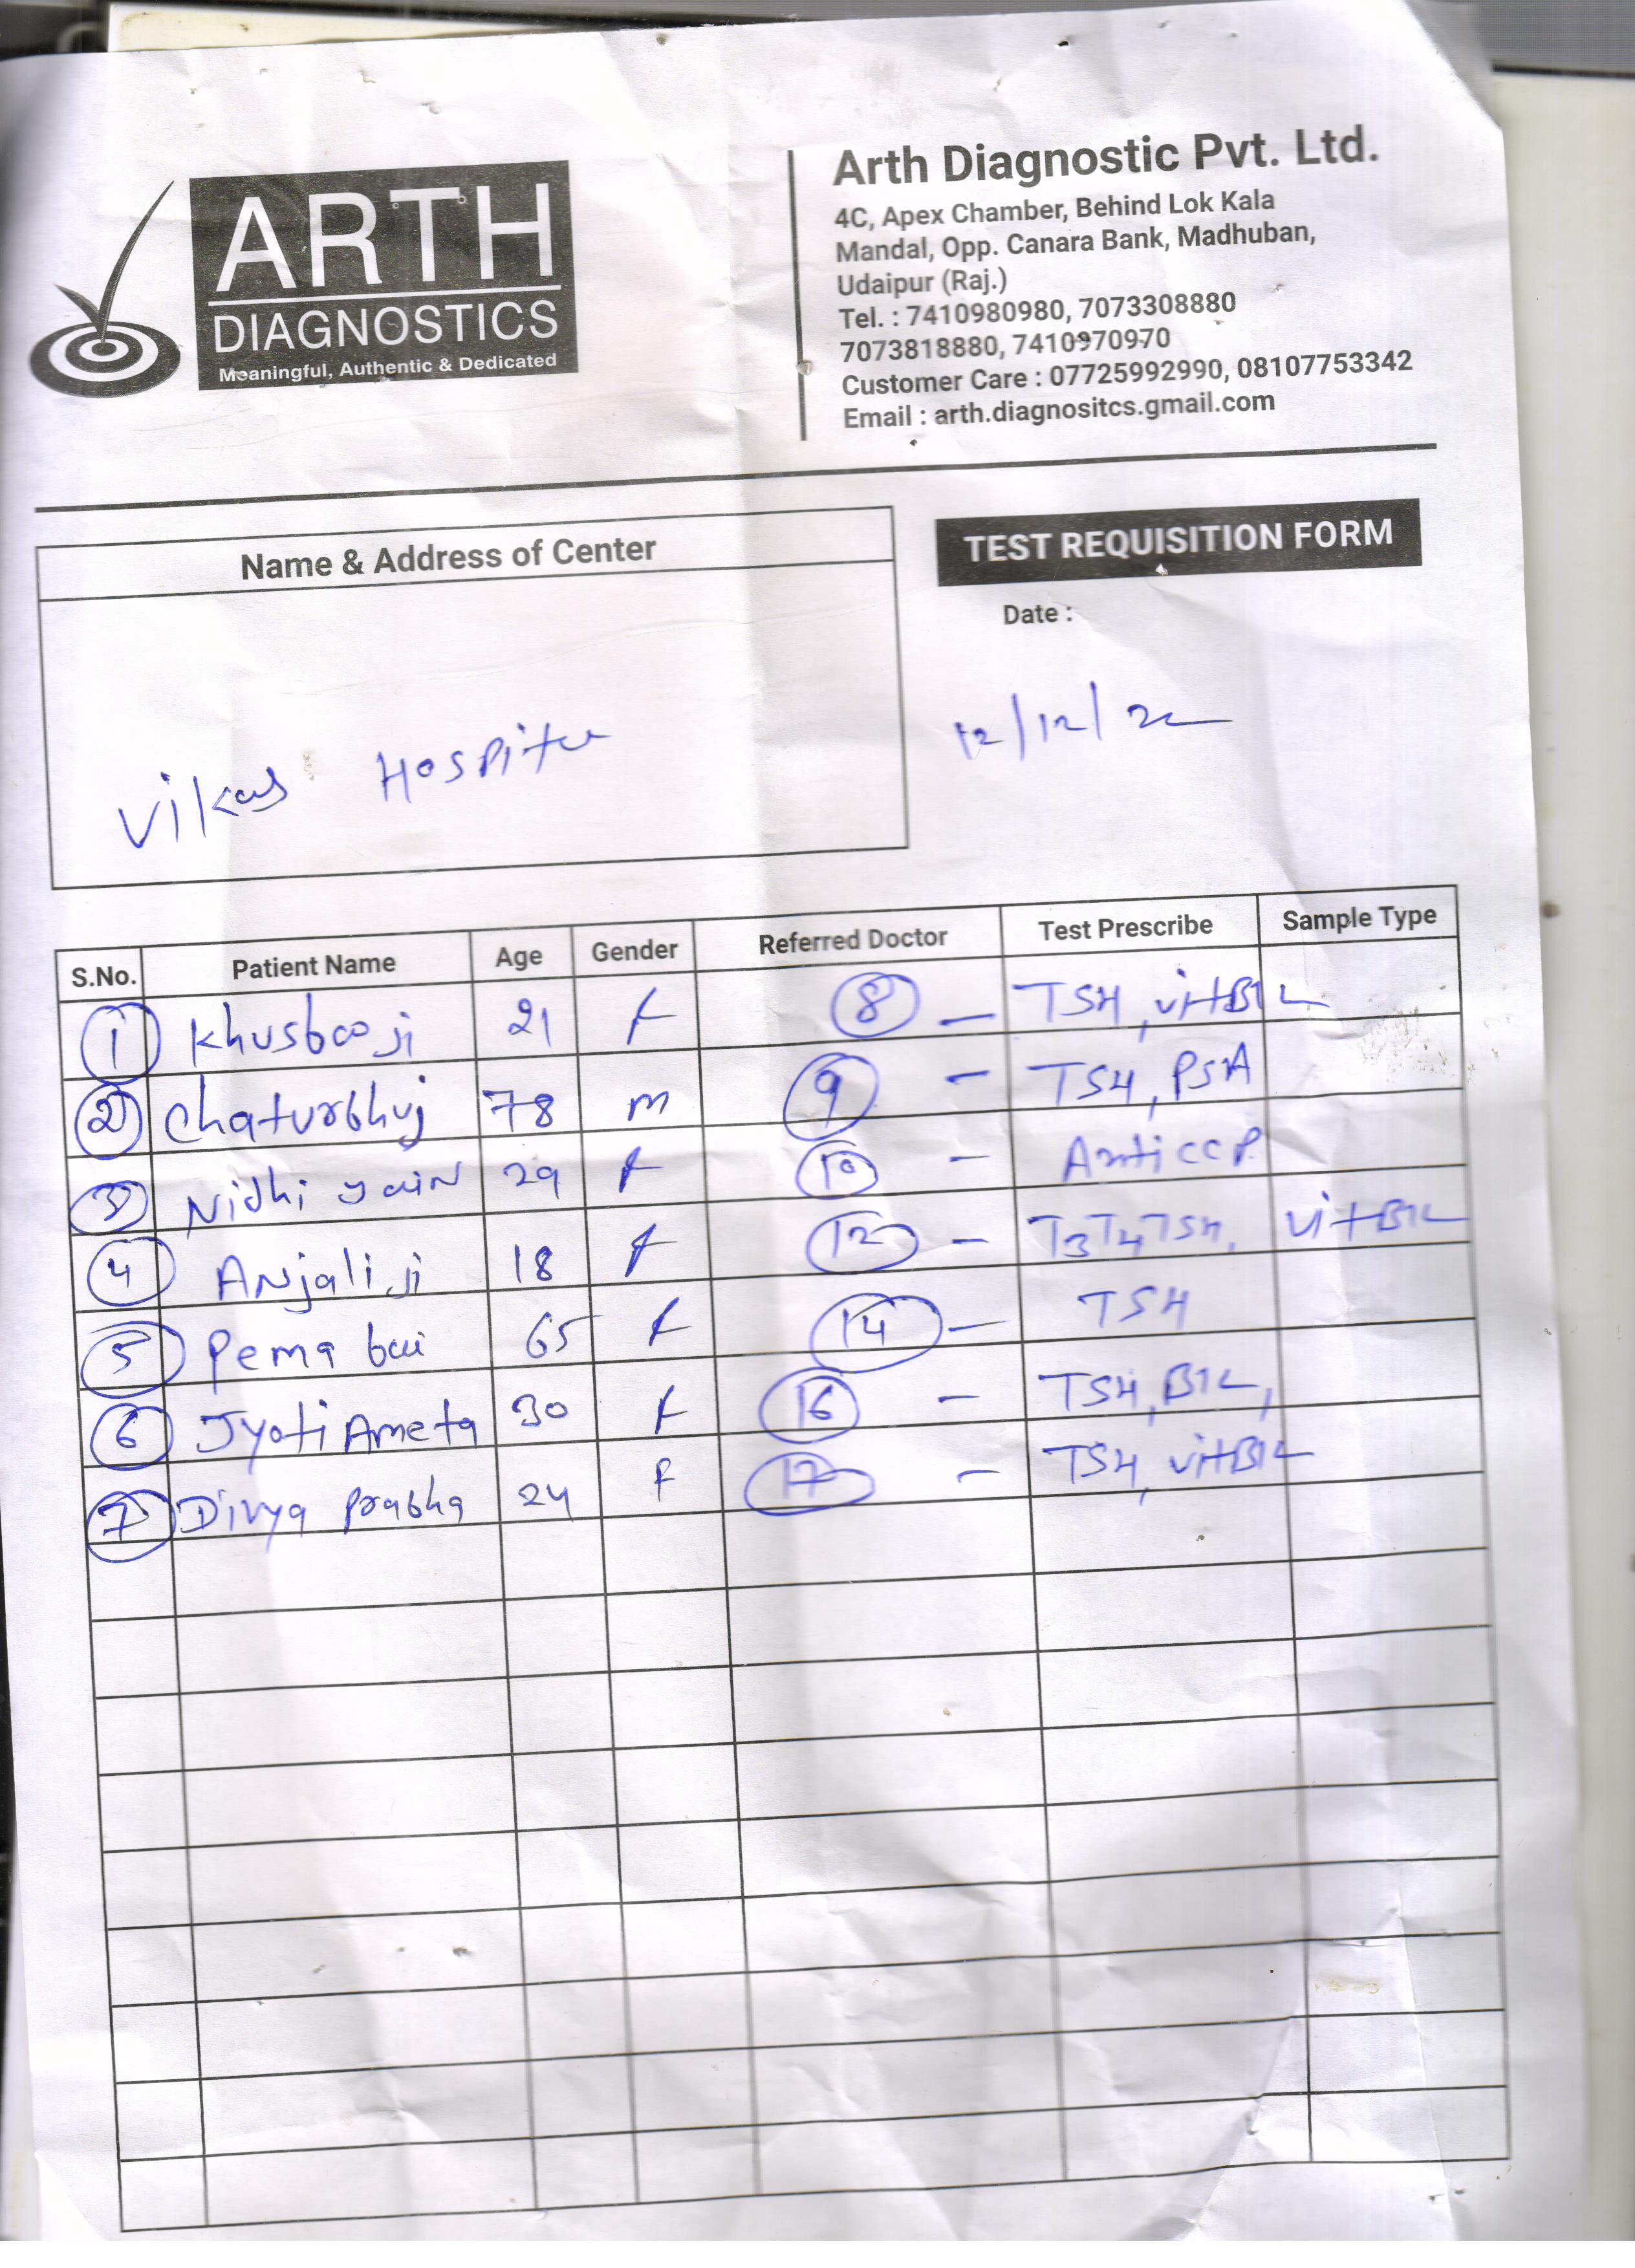 ARTH
DIAGNOSTICS
Meaningful, Authentic & Dedicated
Arth Diagnostic Pvt. Ltd.
4C, Apex Chamber, Behind Lok Kala
Mandal, Opp. Canara Bank, Madhuban,
Udaipur (Raj.)
Tel. : 7410980980, 7073308880
7073818880, 7410970970
Customer Care : 07725992990, 08107753342
Email : arth.diagnositcs.gmail.com
Name & Address of Center
Vikas Hospital
TEST REQUISITION FORM
Date :
12/12/22
S.No. Patient Name Age Gender Referred Doctor Test Prescribe Sample Type
1 Khusboo ji 21 F 8 - TSH, vitB12
2 Chaturbhuj 78 m 9 - TSH, PSA
3 Nidhi jain 29 F 10 - Anti CCP
4 Anjali ji 18 F 12 - T3T4TSH, vitB12
5 Pema bai 65 F 14 - TSH
6 Jyoti Ameta 30 F 16 - TSH, B12,
7 Divya Prabha 24 F 17 - TSH, vitB12